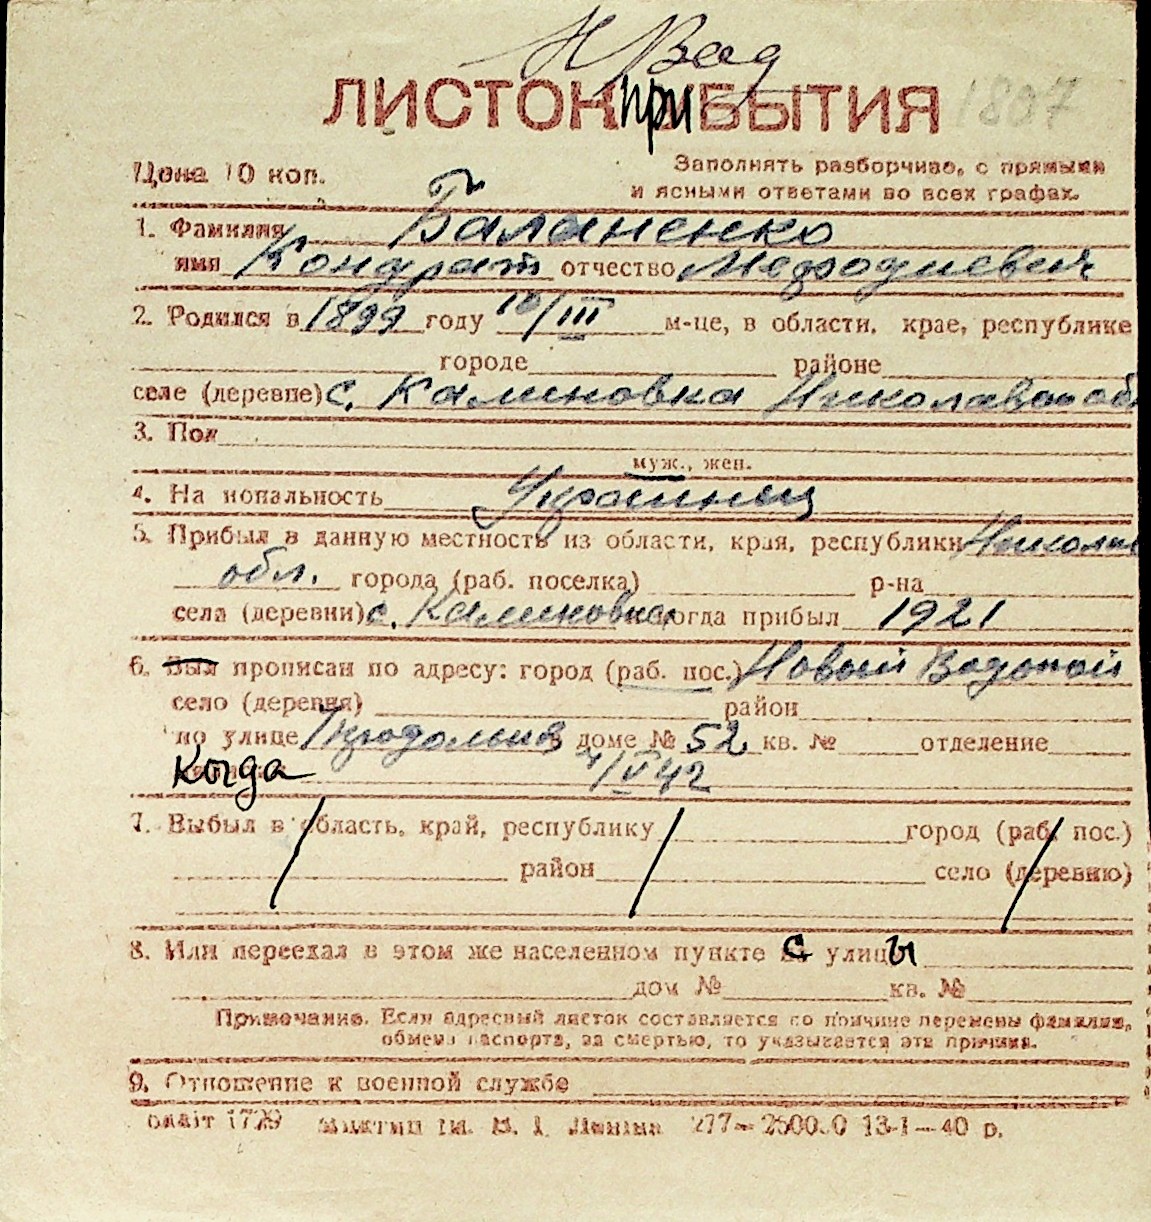 Н Вод
ЛИСТОК при БЫТИЯ 1897
Цена 10 коп. Заполнять разборчиво, с прямыми
и ясными ответами во всех графах.
1. Фамилия Баланенко
имя Кондрат отчество Мефодиевич
2. Родился в 1899 году 10/III м-це, в области, крае, республике
городе районе
селе (деревне) с. Калиновка Николаевской об
3. Пол
муж., жен.
4. На иональность Украинец
5. Прибыл в данную местность из области, края, республики Никола
обл. города (раб. поселка) р-на
села (деревни) с. Калиновка когда прибыл 1921
6. Был прописан по адресу: город (раб. пос.) Новый Водопой
село (деревня) район
по улице Продольная доме № 52 кв. № отделение
Когда 4/V 42
7. Выбыл в область, край, республику город (раб. пос.)
район село (деревню)
8. Или переехал в этом же населенном пункте с улицы
дом № кв. №
Примечание. Если адресный листок составляется по причине перемены фамилии,
обмена паспорта, за смертью, то указывается эта причина.
9. Отношение к военной службе
1729 ім. В. І. Леніна 277— 13-1—40 р.